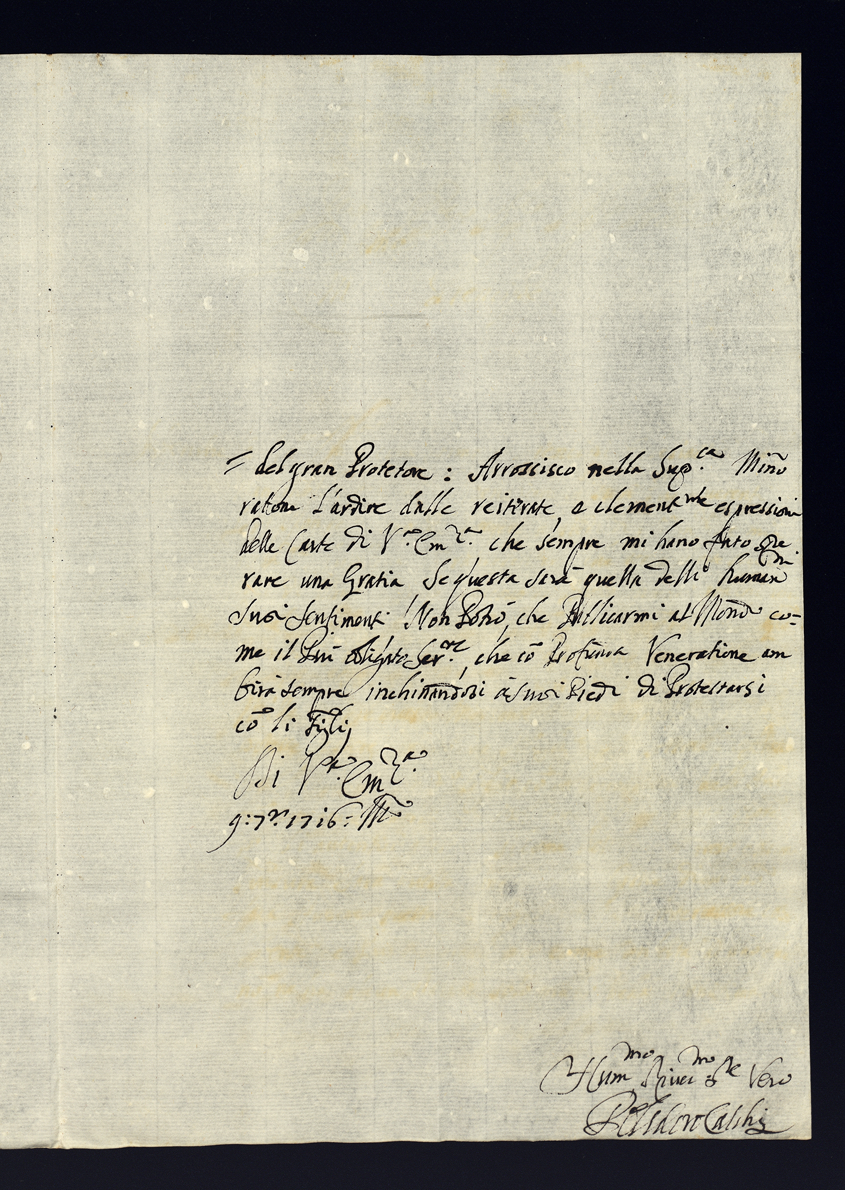 = del gran Protetore : Arrossisco nella Sup.ca Mino
ratione L'ardire dalle reiterate, e clement.me espressioni
delle Carte di V.a Em.za che sempre mi hano fatto spe
rare una Gratia se questa sarà quella delli human.mi
suoi sentimenti! Non Potrò, che Pubblicarmi al Mondo co=
me il Più obligato Ser.re, che cō Profonda Veneratione am
birà sempre inchinandosi à suoi Piedi di Protestarsi
cō li Figli
Di V.a Em.za
9: 7re. 1716:
Hum.mo Rive.mo Se Vero